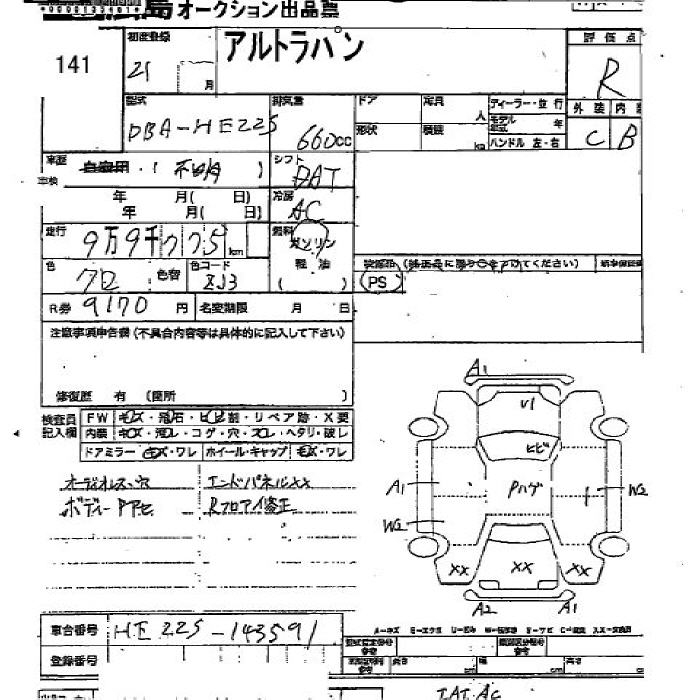 島オークション出品票
141
初度登録
21 月
アルトラパン
評価点
R
型式
DBA-HE22S
排気量
660cc
ドア
定員 人
形状
積載 kg
ディーラー・並行
モデル年式 年
ハンドル 左・右
外装 内装
C B
車歴 自家用・( 不明 )
シフト
DAT
車検
年 月( 日)
年 月( 日)
冷房
AC
走行
9万9千775km
燃料
ガソリン
軽油
( )
色
クロ
色替
色コード
ZJ3
PS
R券 9170 円
名変期限 月 日
注意事項申告欄(不具合内容等は具体的に記入して下さい)
修復歴 有 (箇所 )
検査員記入欄
FW キズ・飛石・ヒビ割・リペア跡・X要
内装 キズ・汚レ・コゲ・穴・スレ・ヘタリ・破レ
ドアミラー キズ・ワレ ホイール・キャップ キズ・ワレ
オーディオレス・穴
エンドパネルXX
Rフロアイ修正
A1
U1
ヒビ
Pハゲ
A1
W2
W2
XX XX XX
A2 A1
車台番号 HE22S-143591
登録番号
長さ cm 幅 cm 高さ cm